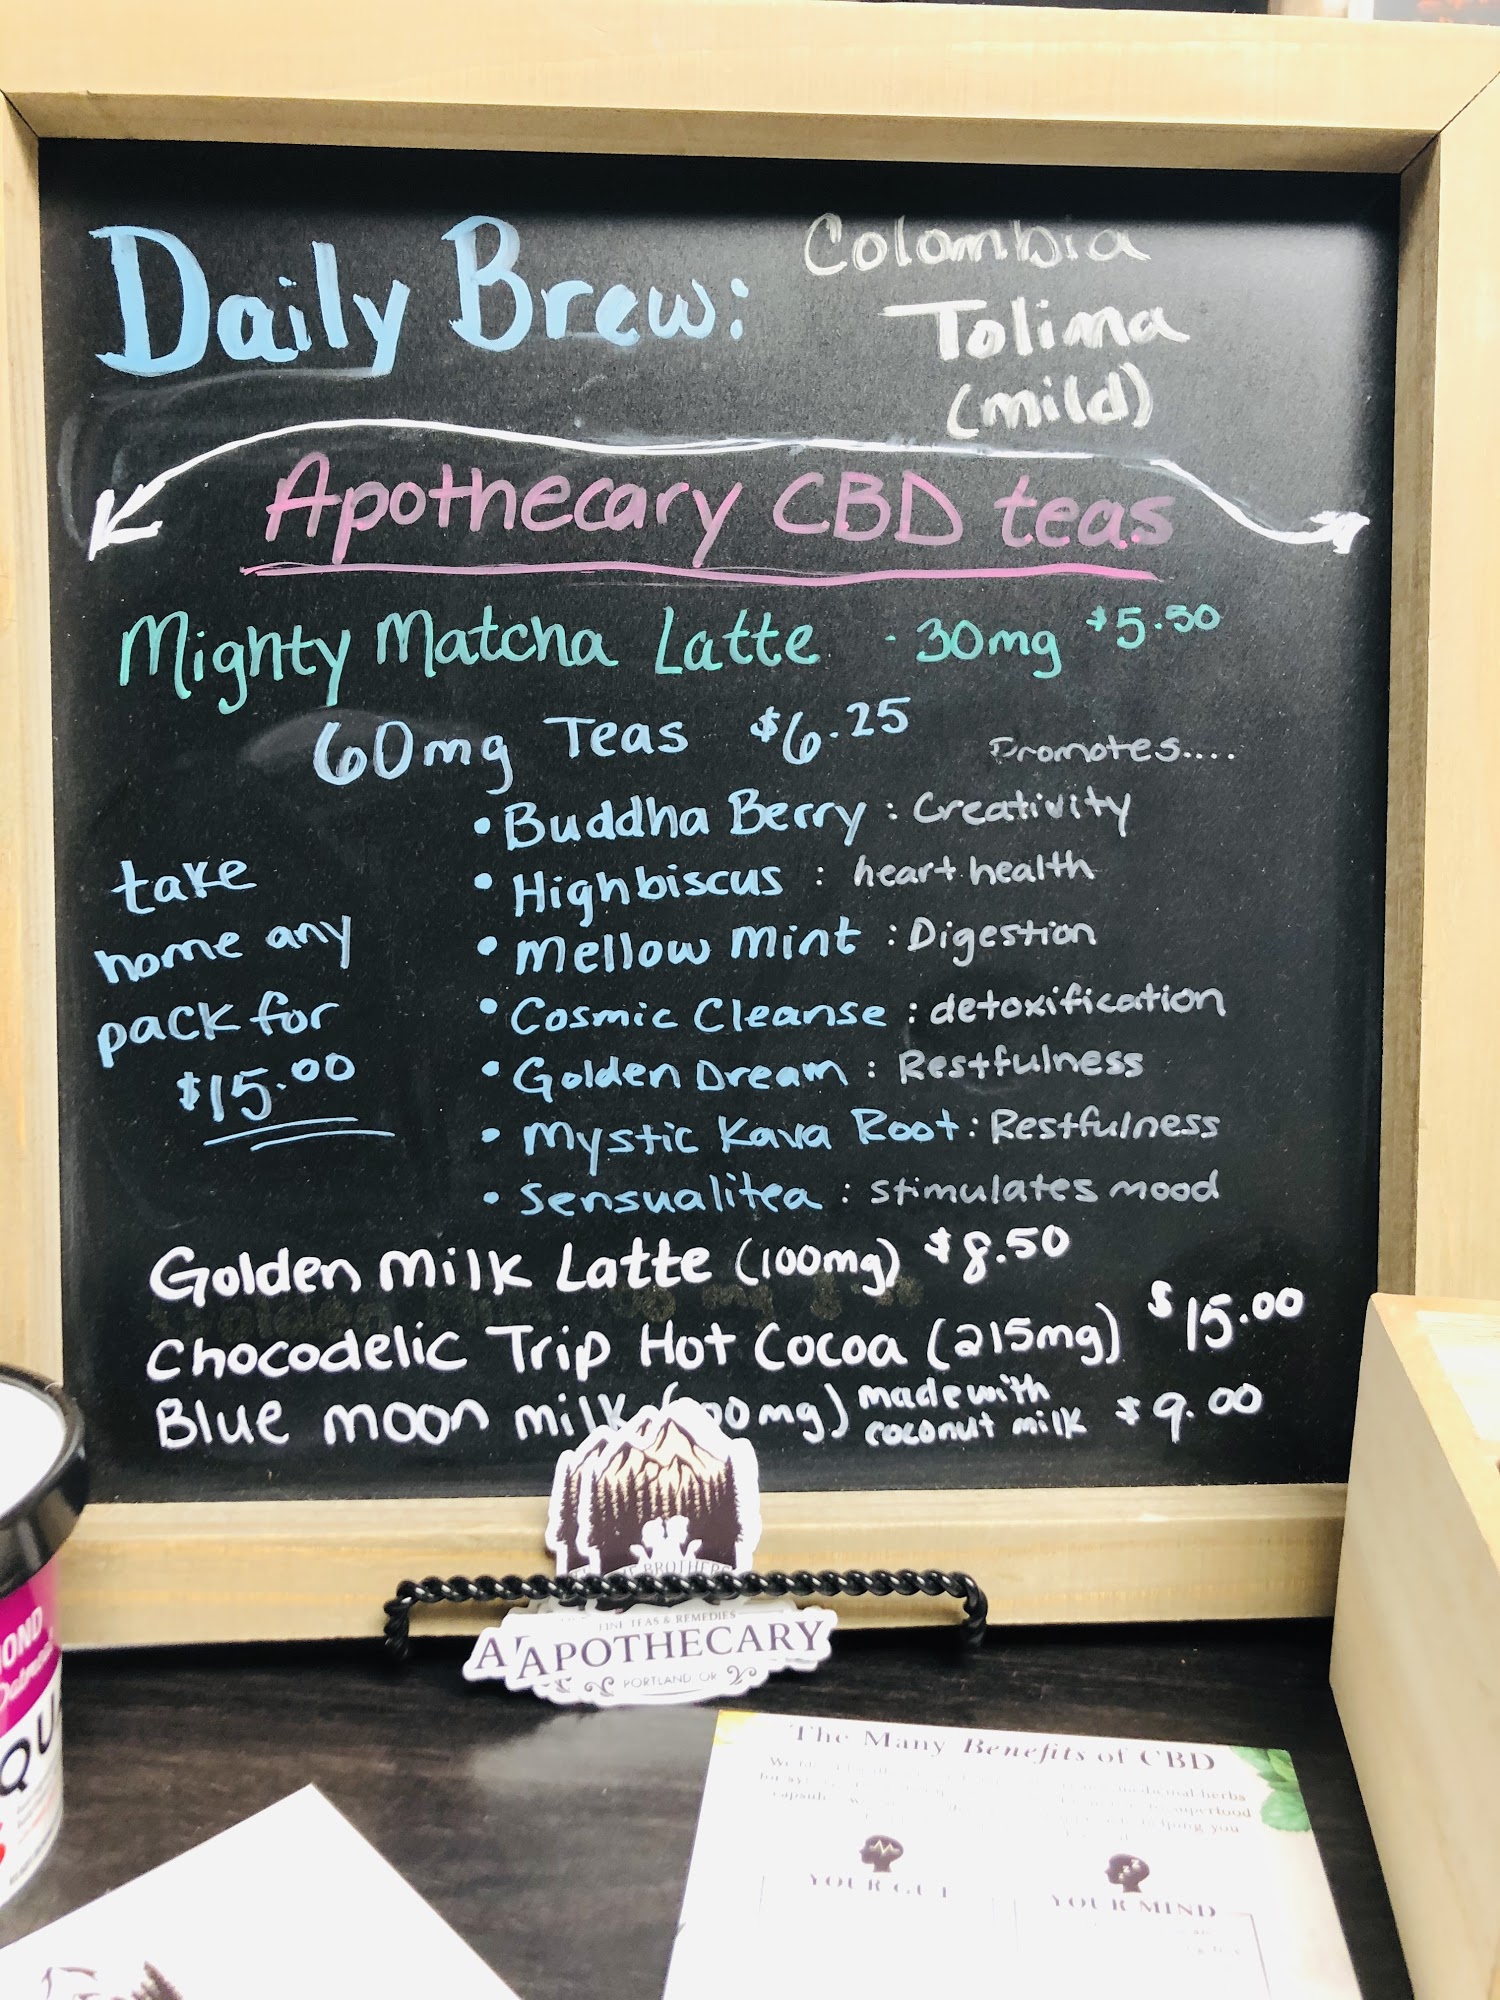 Daily Brew: Colombia
Tolima
(mild)
Apothecary CBD teas
Mighty Matcha Latte - 30mg $5.50
60mg Teas $6.25
Promotes....
• Buddha Berry : Creativity
• Highbiscus : heart health
• Mellow Mint : Digestion
• Cosmic Cleanse : detoxification
• Golden Dream : Restfulness
• Mystic Kava Root : Restfulness
• Sensualitea : stimulates mood
take
home any
pack for
$15.00
Golden Milk Latte (100mg) $8.50
Chocodelic Trip Hot Cocoa (215mg) $15.00
Blue moon milk 00mg) made with
coconut milk $9.00
BROTHERS
FINE TEAS & REMEDIES
APOTHECARY
PORTLAND OR
The Many Benefits of CBD
medicinal herbs
superfood
helping you
YOUR GUT
YOUR MIND
OND
QU